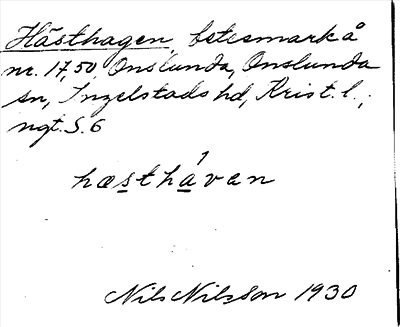 Hästhagen, betesmark å
nr. 17,50, Onslunda, Onslunda
sn, Ingelstads hd, Krist. l.;
ngt. S. 6
hæsthávan
Nils Nilsson 1930